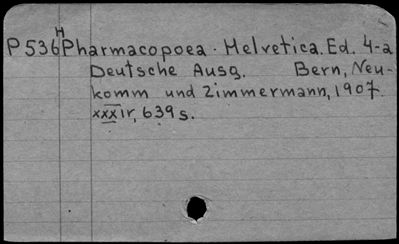 P536 H Pharmacopoea Helvetica. Ed. 4-a
Deutsche Ausg. Bern, Neu-
komm und Zimmermann, 1907.
xxxiv, 639 s.